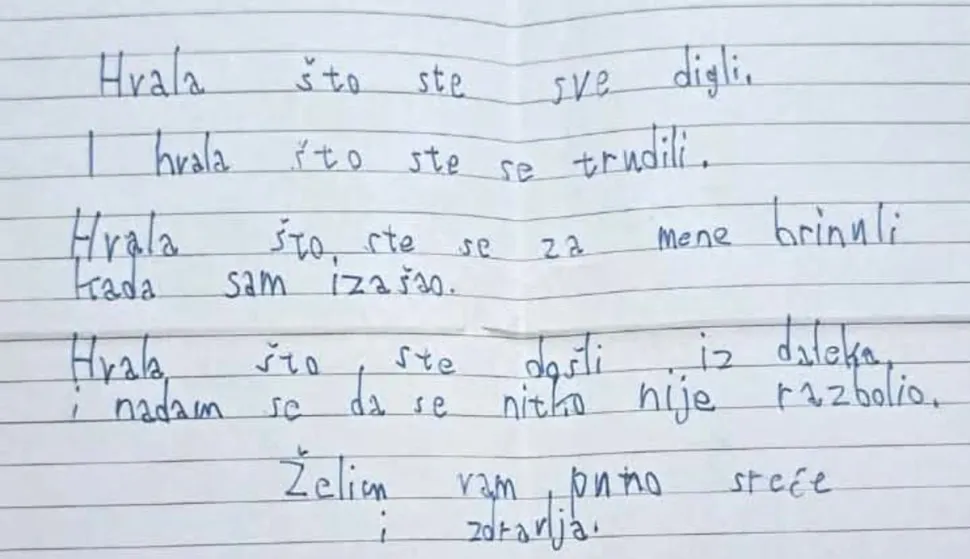 Hvala što ste sve digli.
I hvala što ste se trudili.
Hvala što ste se za mene brinuli
kada sam izašao.
Hvala što ste došli iz daleka,
i nadam se da se nitko nije razbolio.
Želim vam puno sreće
i zdravlja.